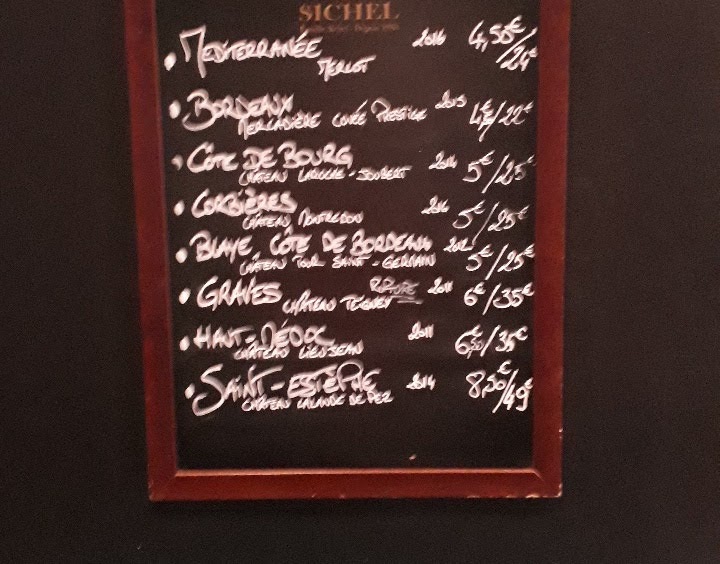 SICHEL
• MEDITERRANÉE 2016 4,50€/24€
MERLOT
• BORDEAUX 2015 4€/22€
MERCADIÈRE CUVÉE PRESTIGE
• CÔTE DE BOURG 2014 5€/25€
CHÂTEAU LAROCHE-JOUBERT
• CORBIÈRES 2016 5€/25€
CHÂTEAU MONTREDON
• BLAYE, CÔTE DE BORDEAUX 2012 5€/25€
CHÂTEAU TOUR SAINT-GERMAIN
• GRAVES RUPTURE 2011 6€/35€
CHÂTEAU TEIGNEY
• HAUT-MÉDOC 2011 6,50€/35€
CHÂTEAU LIEUJEAN
• SAINT-ESTÈPHE 2014 8,50€/49€
CHÂTEAU LALANDE DE PEZ